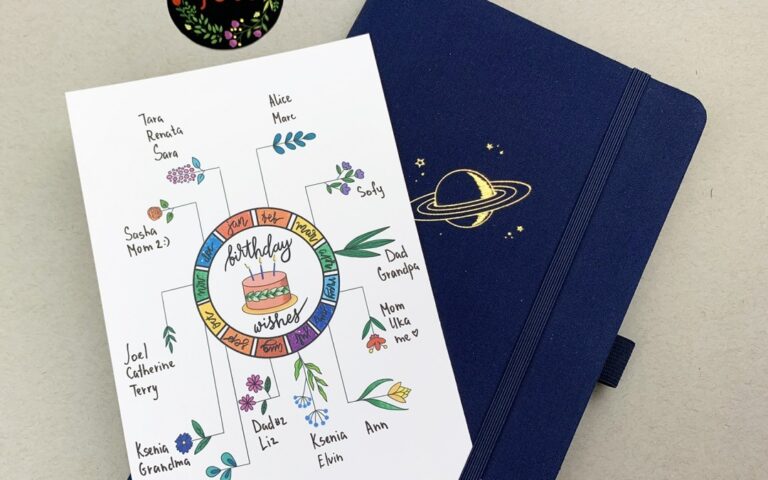 Tara
Renata
Sara
Alice
Marc
Sofy
Sasha
Mom 2:)
jan
feb
mar
apr
may
jun
jul
aug
sep
oct
nov
dec
birthday
wishes
Dad
Grandpa
Mom
Uka
me ♡
Joel
Catherine
Terry
Ksenia
Grandma
Dad #2
Liz
Ksenia
Elvin
Ann